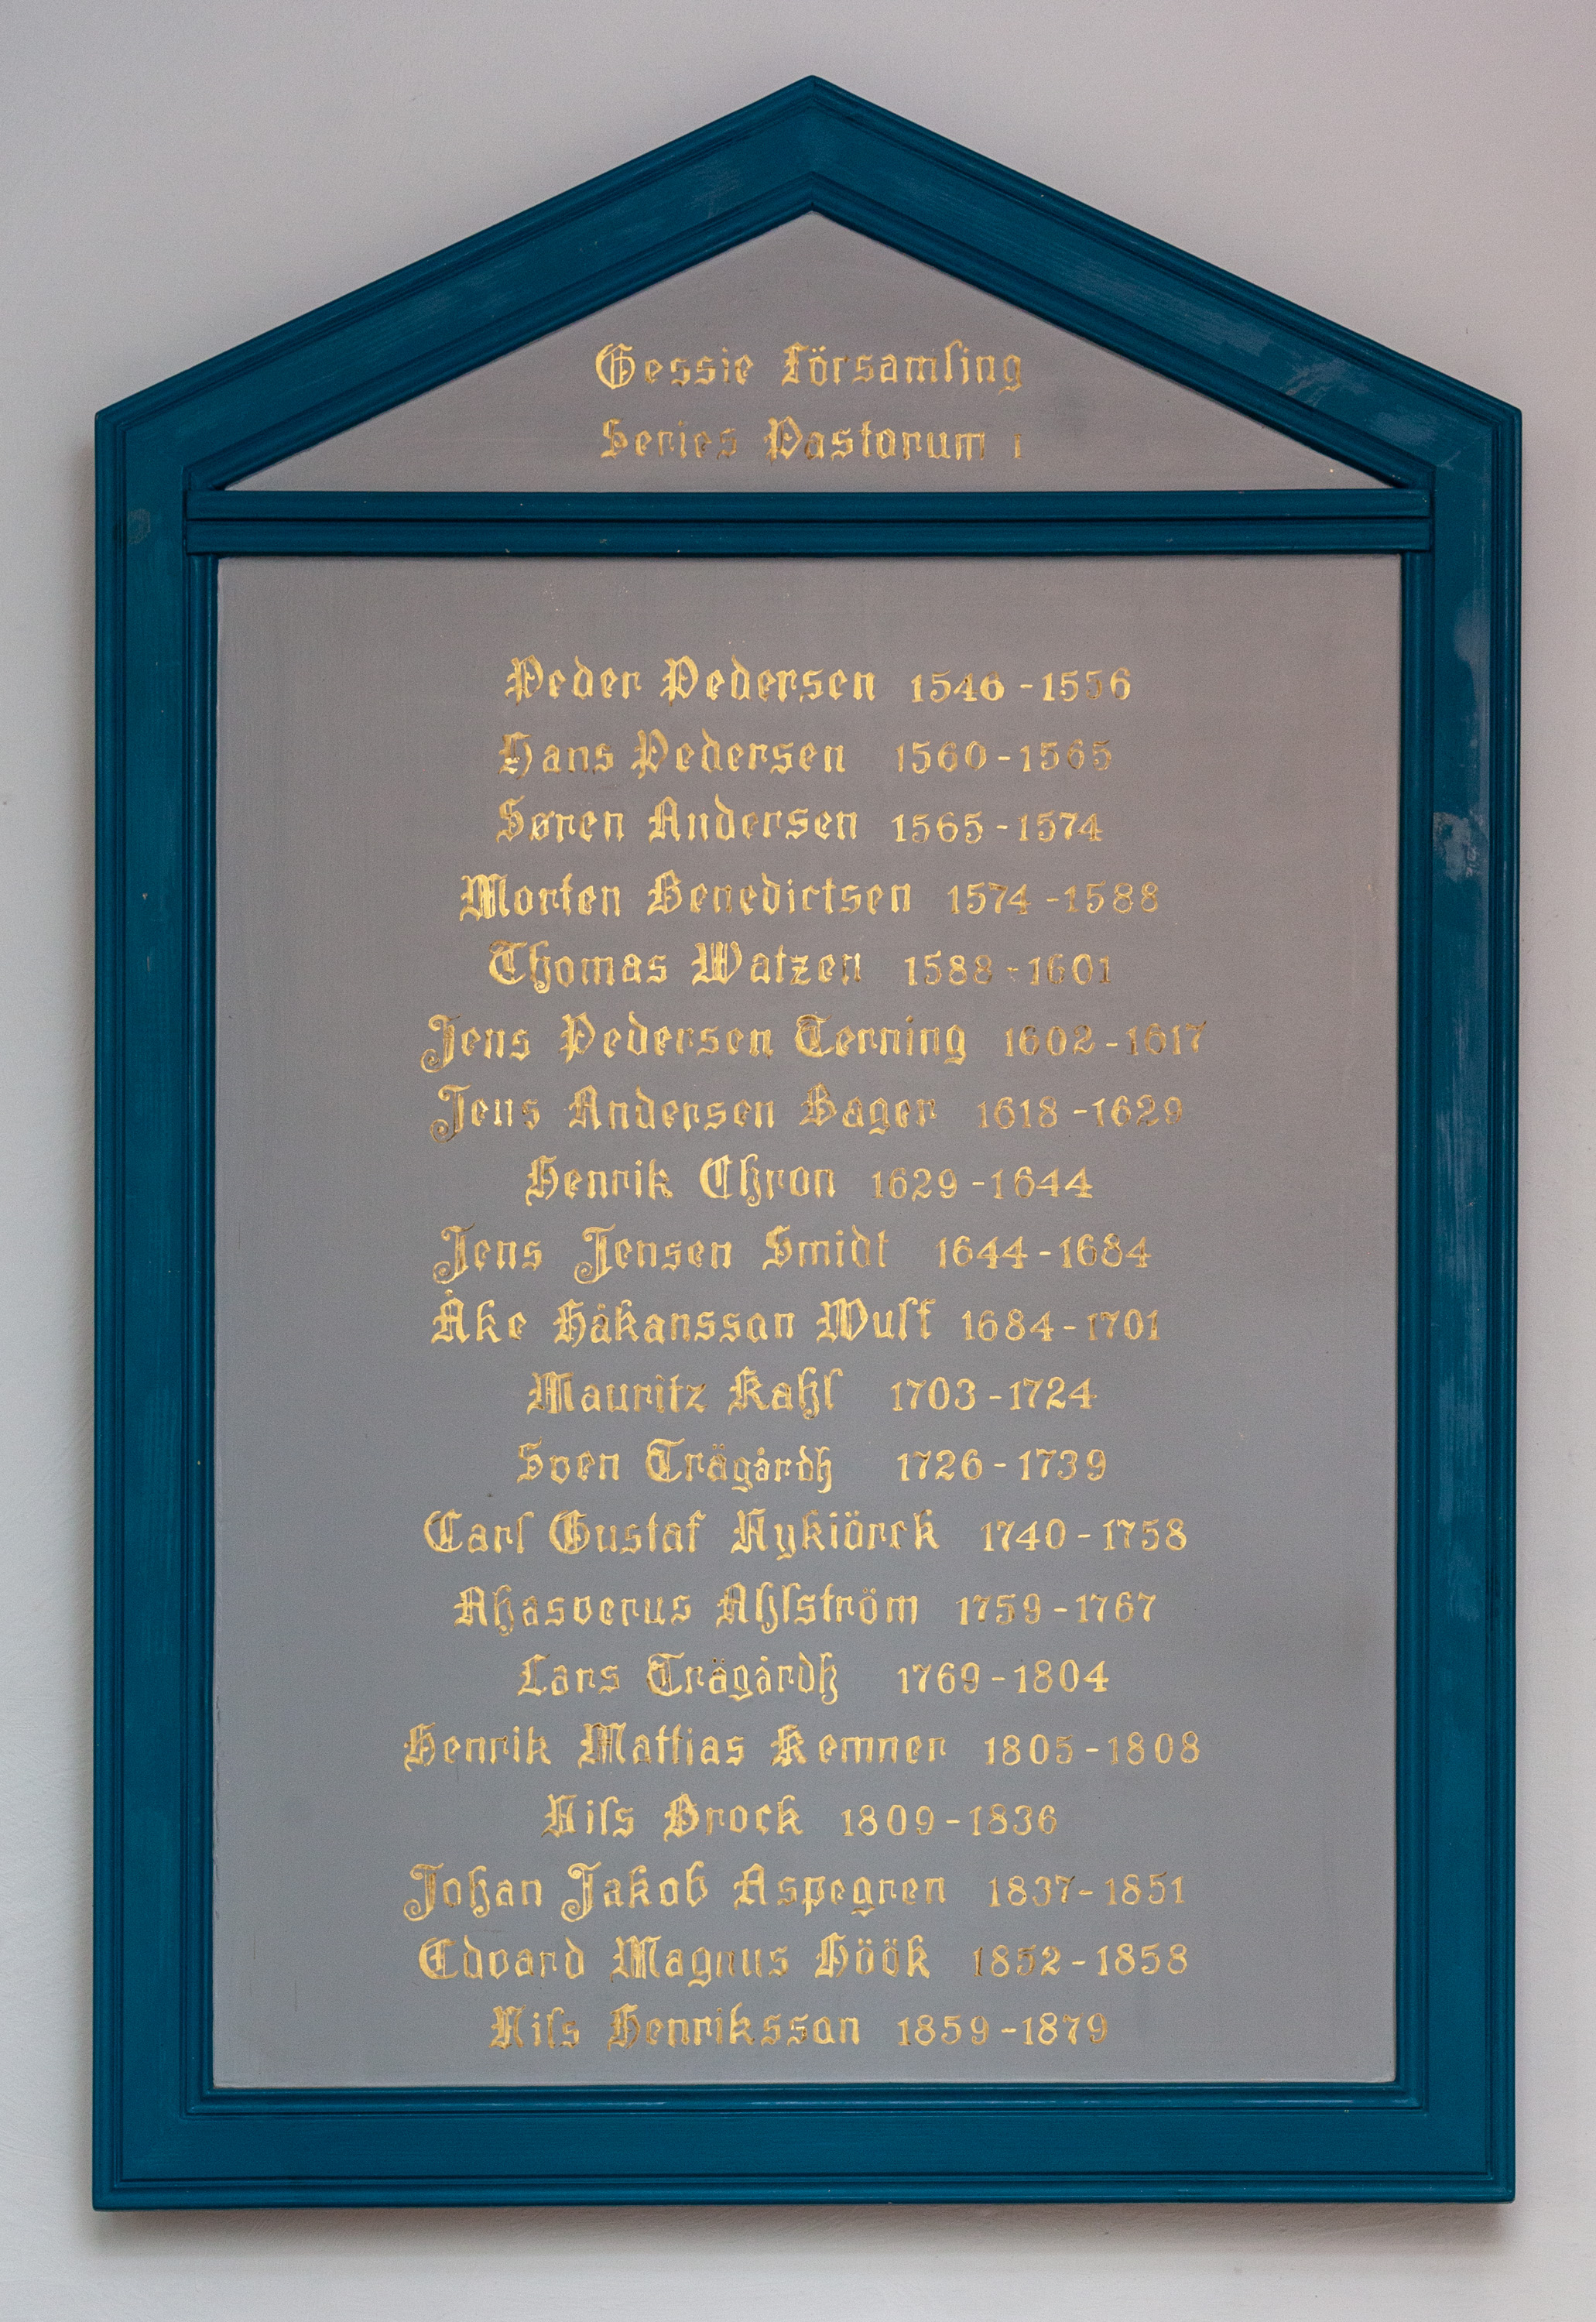 Gessie församling
Series Pastorum 1
Peder Pedersen 1546 - 1556
Hans Pedersen 1560 - 1565
Søren Andersen 1565 - 1574
Morten Benedictsen 1574 - 1588
Thomas Watzen 1588 - 1601
Jens Pedersen Terning 1602 - 1617
Jens Andersen Bager 1618 - 1629
Henrik Chron 1629 - 1644
Jens Jensen Smidt 1644 - 1684
Åke Håkansson Wulf 1684 - 1701
Mauritz Kahl 1703 - 1724
Sven Trägårdh 1726 - 1739
Carl Gustaf Nykiörck 1740 - 1758
Ahasverus Ahlström 1759 - 1767
Lars Trägårdh 1769 - 1804
Henrik Mattias Kemner 1805 - 1808
Nils Brock 1809 - 1836
Johan Jakob Aspegren 1837 - 1851
Edvard Magnus Höök 1852 - 1858
Nils Henriksson 1859 - 1879